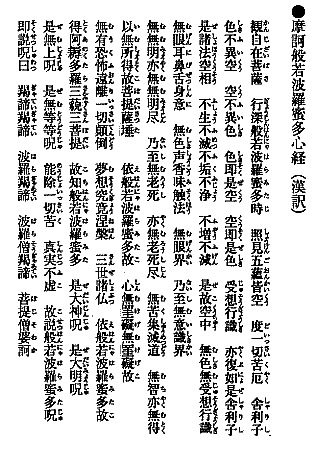 ●摩訶般若波羅蜜多心経（漢訳）
観自在菩薩　行深般若波羅蜜多時　照見五蘊皆空　度一切苦厄　舎利子
色不異空　空不異色　色即是空　空即是色　受想行識　亦復如是舎利子
是諸法空相　不生不滅不垢不浄　不増不減　是故空中　無色無受想行識
無眼耳鼻舌身意　無色声香味触法　無眼界　乃至無意識界
無無明亦無無明尽　乃至無老死　亦無老死尽　無苦集滅道　無智亦無得
以無所得故菩提薩埵　依般若波羅蜜多故　心無罣礙無罣礙故
無有恐怖遠離一切顛倒　夢想究竟涅槃　三世諸仏　依般若波羅蜜多故
得阿耨多羅三藐三菩提　故知般若波羅蜜多　是大神呪　是大明呪
是無上呪　是無等等呪　能除一切苦　真実不虚　故説般若波羅蜜多呪
即説呪曰　羯諦羯諦　波羅羯諦　波羅僧羯諦　菩提僧婆訶